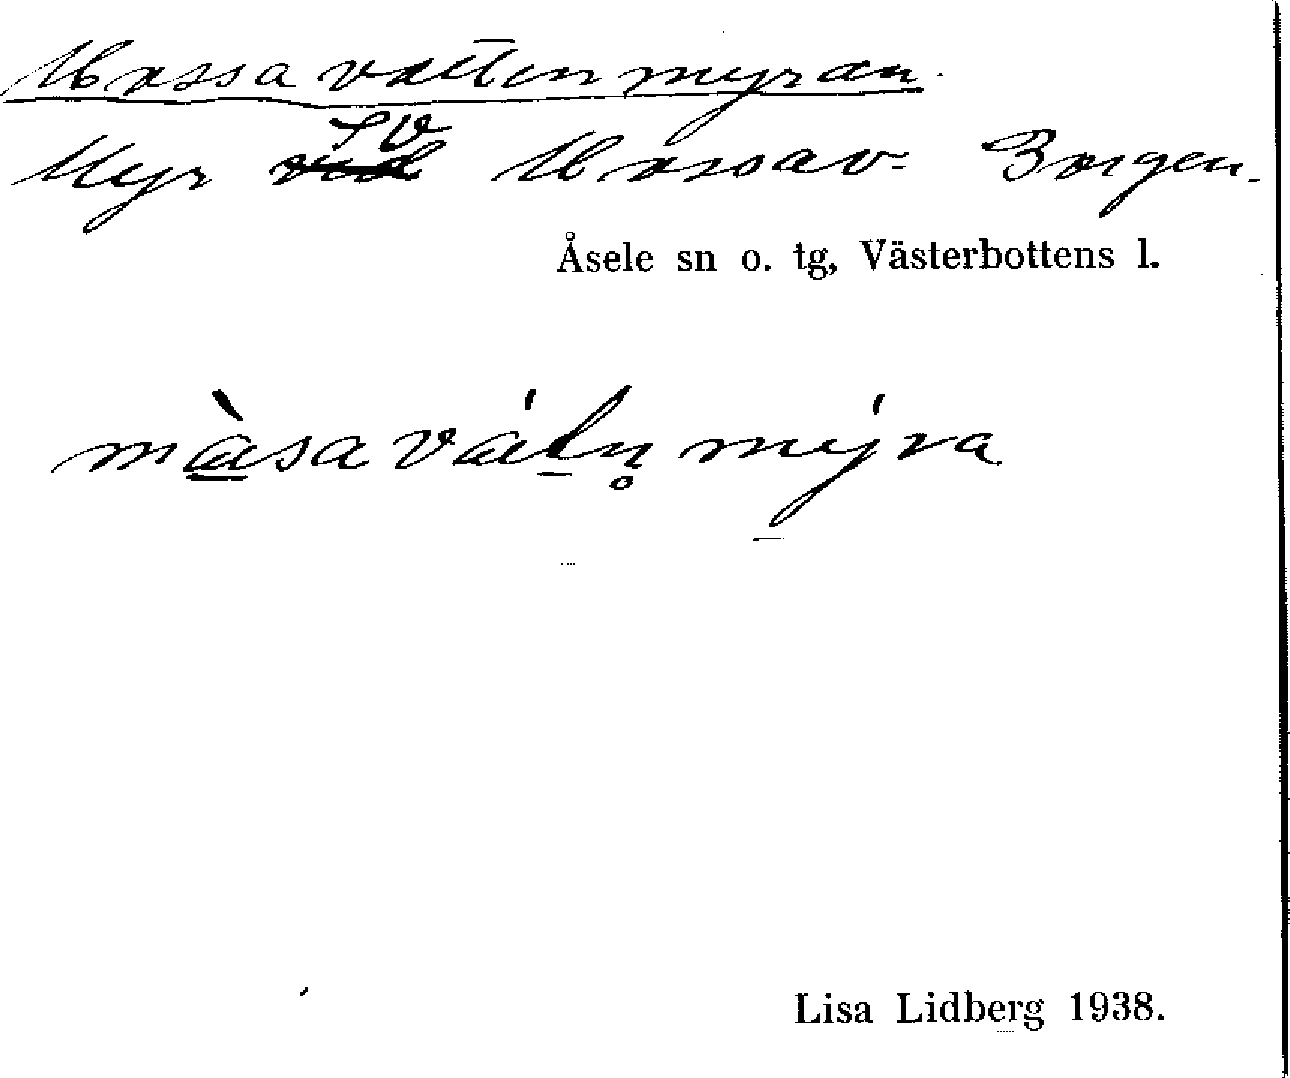 Massavattenmyran.
Myr SV Massav= Borgen.
Åsele sn o. tg, Västerbottens l.
màsavátn̥ mýra
Lisa Lidberg 1938.